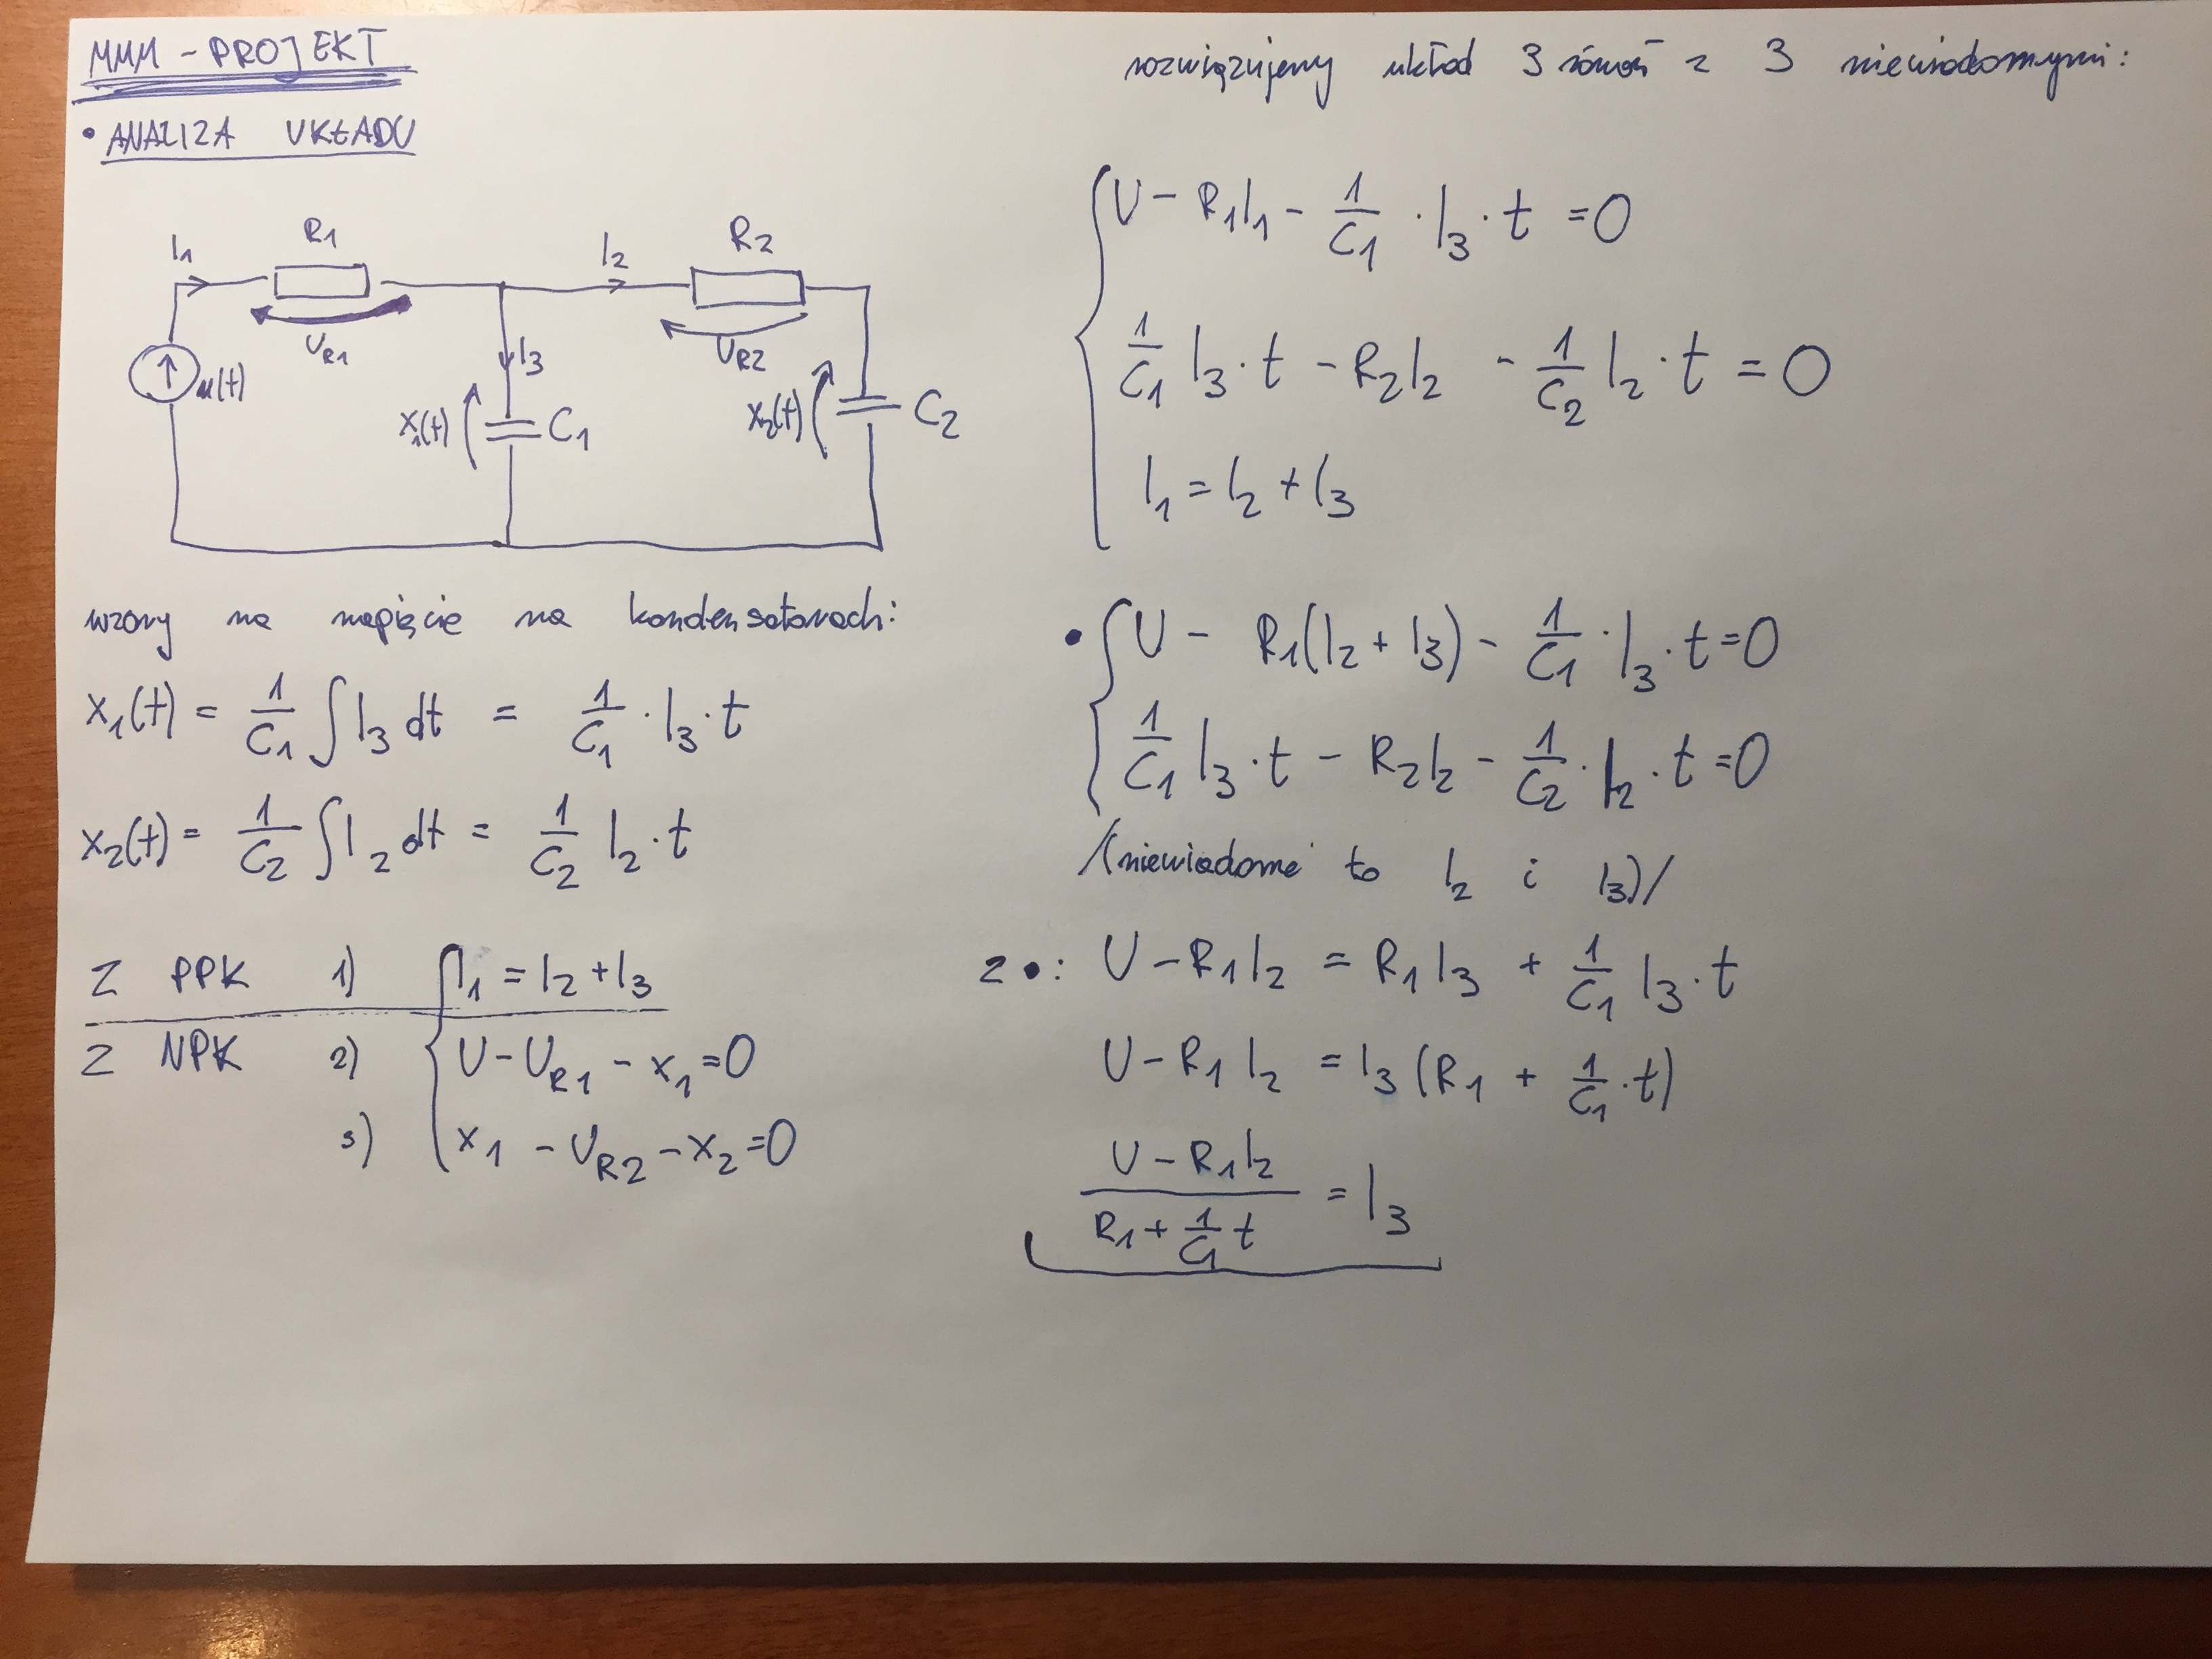 MMM - PROJEKT
• ANALIZA UKŁADU
I1 R1 I2 R2
UR1 I3 UR2
u(t) x1(t) C1 x2(t) C2
wzory na napięcie na kondensatorach:
x1(t) = 1/C1 ∫ I3 dt = 1/C1 · I3 · t
x2(t) = 1/C2 ∫ I2 dt = 1/C2 I2 · t
Z PPK 1) I1 = I2 + I3
Z NPK 2) U - UR1 - x1 = 0
3) x1 - UR2 - x2 = 0
rozwiązujemy układ 3 równań z 3 niewiadomymi:
U - R1I1 - 1/C1 · I3 · t = 0
1/C1 I3 · t - R2I2 - 1/C2 I2 · t = 0
I1 = I2 + I3
• U - R1(I2 + I3) - 1/C1 · I3 · t = 0
1/C1 I3 · t - R2I2 - 1/C2 · I2 · t = 0
/(niewiadome to I2 i I3)/
z •: U - R1I2 = R1I3 + 1/C1 I3 · t
U - R1I2 = I3 (R1 + 1/C1 · t)
(U - R1I2)/(R1 + 1/C1 t) = I3